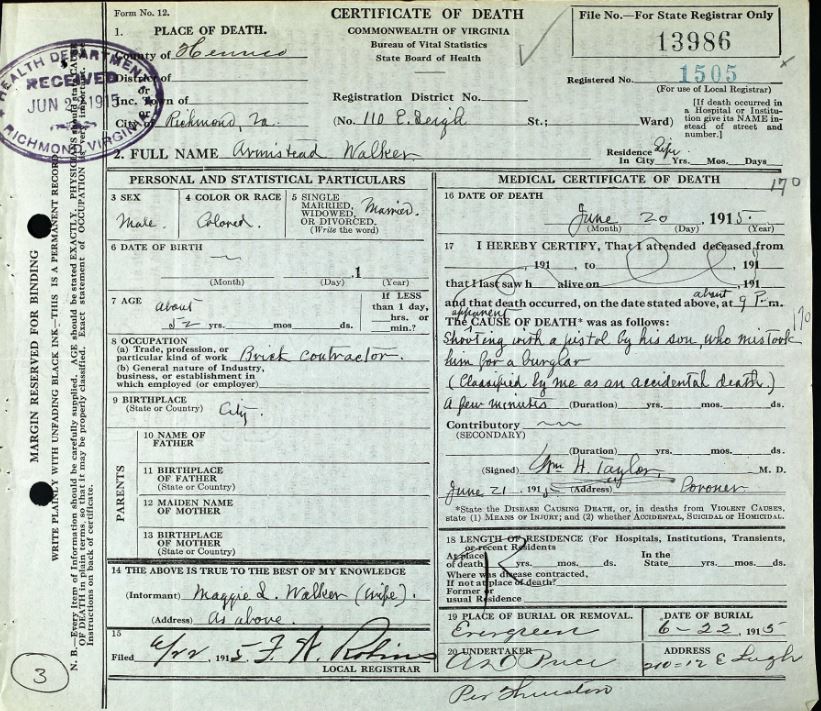 Form No. 12.
CERTIFICATE OF DEATH
COMMONWEALTH OF VIRGINIA
Bureau of Vital Statistics
State Board of Health
File No.—For State Registrar Only
13986
1. PLACE OF DEATH.
County of Henrico
District of
or
Inc. Town of
or
City of Richmond, Va.
HEALTH DEPARTMENT
RECEIVED
JUN 2 1915
RICHMOND, VIRGINIA
Registration District No.
(No. 110 E. Leigh St.; Ward)
Registered No. 1505
(For use of Local Registrar)
[If death occurred in a Hospital or Institution give its NAME instead of street and number.]
2. FULL NAME Armistead Walker
Residence In City Life Yrs. Mos. Days
PERSONAL AND STATISTICAL PARTICULARS
3 SEX
Male.
4 COLOR OR RACE
Colored.
5 SINGLE MARRIED, WIDOWED, OR DIVORCED. (Write the word)
Married.
6 DATE OF BIRTH
(Month) (Day) 1 (Year)
7 AGE
about
52 yrs. mos ds.
If LESS than 1 day, hrs. or min.?
8 OCCUPATION
(a) Trade, profession, or particular kind of work Brick contractor.
(b) General nature of Industry, business, or establishment in which employed (or employer)
9 BIRTHPLACE
(State or Country)
City.
PARENTS
10 NAME OF FATHER
11 BIRTHPLACE OF FATHER
(State or Country)
12 MAIDEN NAME OF MOTHER
13 BIRTHPLACE OF MOTHER
(State or Country)
14 THE ABOVE IS TRUE TO THE BEST OF MY KNOWLEDGE
(Informant) Maggie L. Walker (wife).
(Address) As above.
15
Filed 6/22, 1915 F. W. Robins
LOCAL REGISTRAR
MEDICAL CERTIFICATE OF DEATH
170
16 DATE OF DEATH
June 20 1915.
(Month) (Day) (Year)
17 I HEREBY CERTIFY, That I attended deceased from
, 191 , to , 191
that I last saw h alive on , 191
and that death occurred, on the date stated above, at about 9 P. m.
apparent
The CAUSE OF DEATH* was as follows:
Shooting with a pistol by his son, who mistook
170
him for a burglar
(Classified by me as an accidental death.)
A few minutes (Duration) yrs. mos. ds.
Contributory
(SECONDARY)
(Duration) yrs. mos. ds.
(Signed) Wm H. Taylor, M. D.
June 21 1915 (Address) Coroner
*State the DISEASE CAUSING DEATH, or, in deaths from VIOLENT CAUSES, state (1) MEANS OF INJURY; and (2) whether ACCIDENTAL, SUICIDAL or HOMICIDAL.
18 LENGTH OF RESIDENCE (For Hospitals, Institutions, Transients, or recent Residents
At place of death yrs. mos. ds. In the State yrs. mos. ds.
Where was disease contracted, If not at place of death?
Former or usual Residence
19 PLACE OF BURIAL OR REMOVAL.
Evergreen
DATE OF BURIAL
6-22, 1915
20 UNDERTAKER
A D Price
ADDRESS
210-12 E Leigh
Per Thurston
MARGIN RESERVED FOR BINDING
WRITE PLAINLY WITH UNFADING BLACK INK—THIS IS A PERMANENT RECORD
N. B.—Every item of Information should be carefully supplied. AGE should be stated EXACTLY. PHYSICIANS should state CAUSE
OF DEATH in plain terms, so that it may be properly classified. Exact statement of OCCUPATION is very important.
Instructions on back of certificate.
3